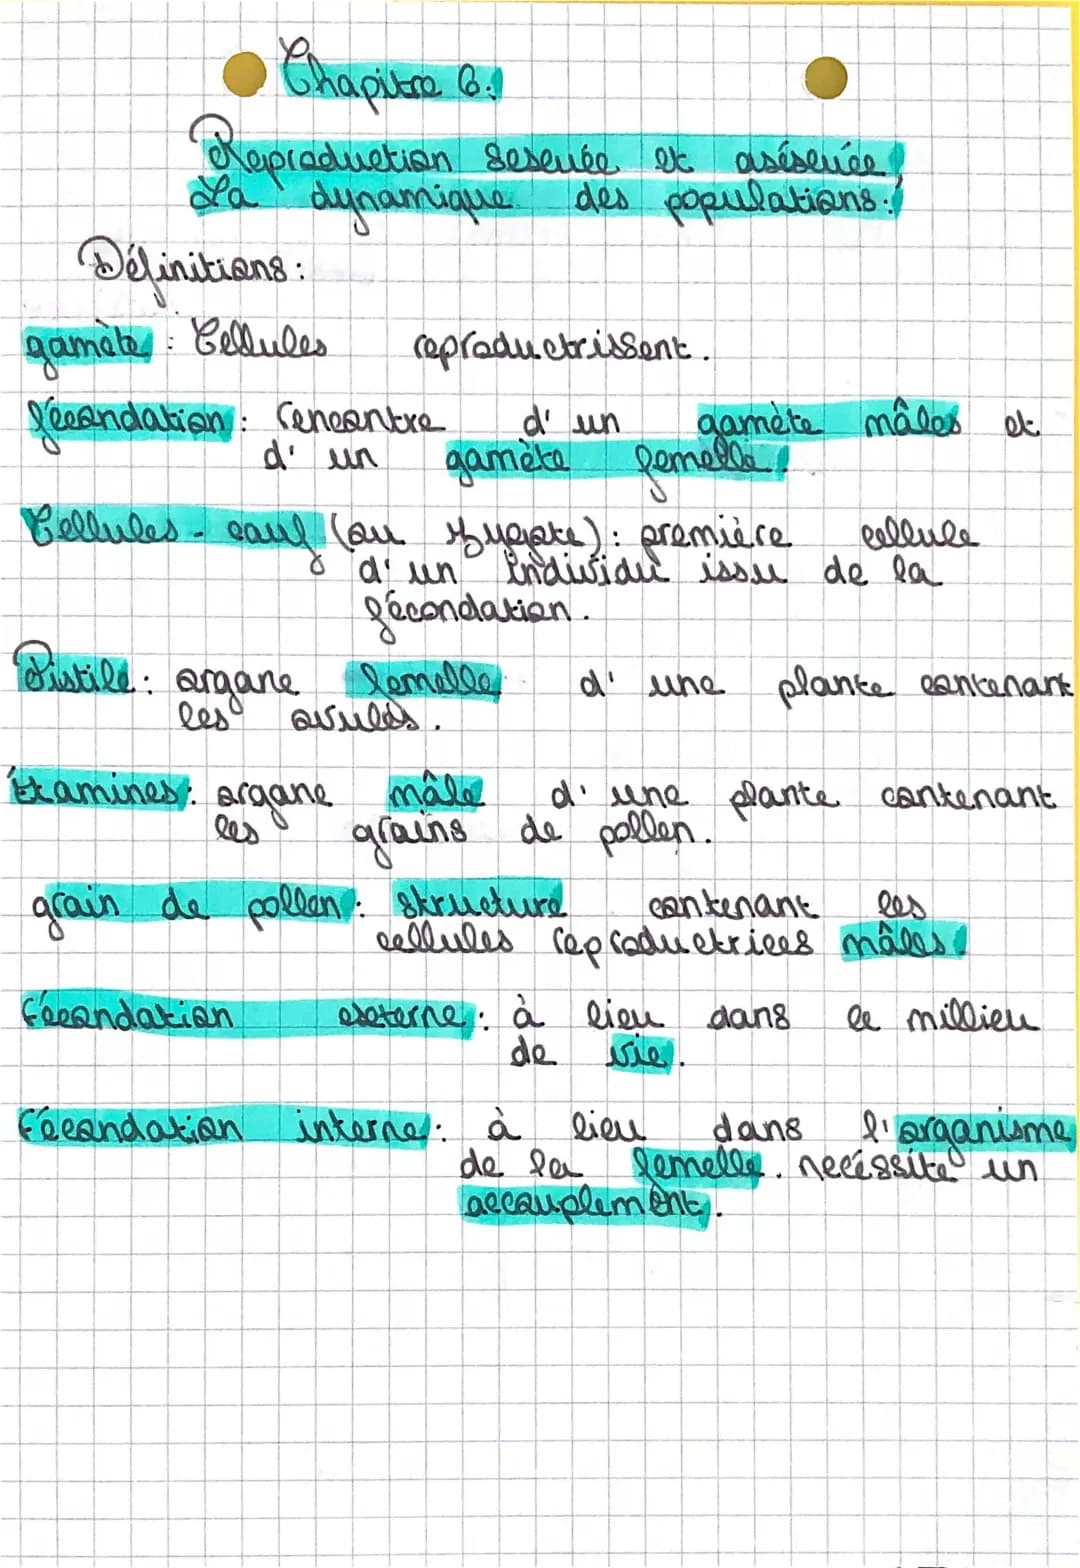 Chapitre 6:
Reproduction sexuée et asexuée,
La dynamique des populations:
Définitions:
gamète: Cellules reproductrissent.
fécondation: rencontre d'un gamète mâles et
d'un gamète femelle.
Cellules-oeuf (ou zygote): première cellule
d'un individu issu de la
fécondation.
Pistile: organe femelle d'une plante contenant
les ovules.
étamines: organe mâle d'une plante contenant
les grains de pollen.
grain de pollen: structure contenant les
cellules reproductrices mâles.
Fécondation externe: à lieu dans le millieu
de vie.
Fécondation interne: à lieu dans l'organisme
de la femelle. necéssite un
accouplement.